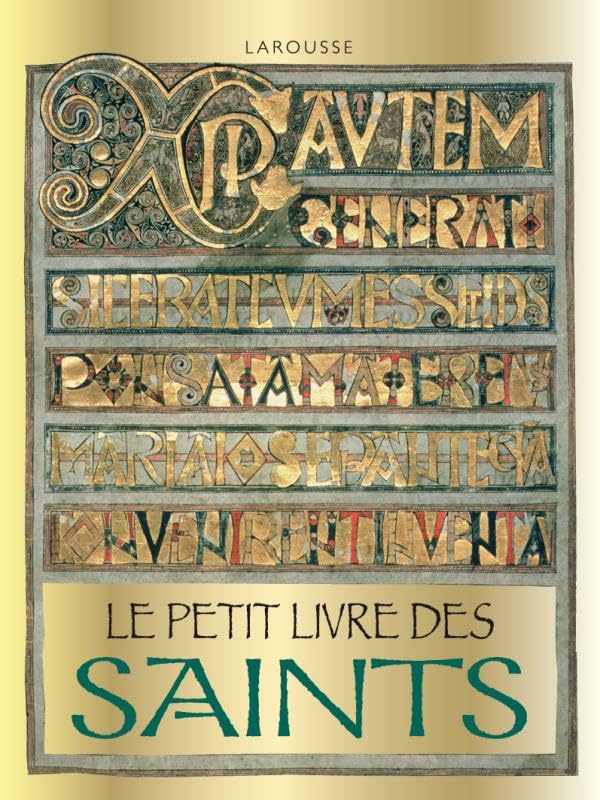 LAROUSSE
XPI AVTEM
GENERATI
SICERATCVMESSETDS
PONSATAMATEREIVS
MARIAIOSEPANTEQA
CONVENIRENTINVENTA
LE PETIT LIVRE DES
SAINTS